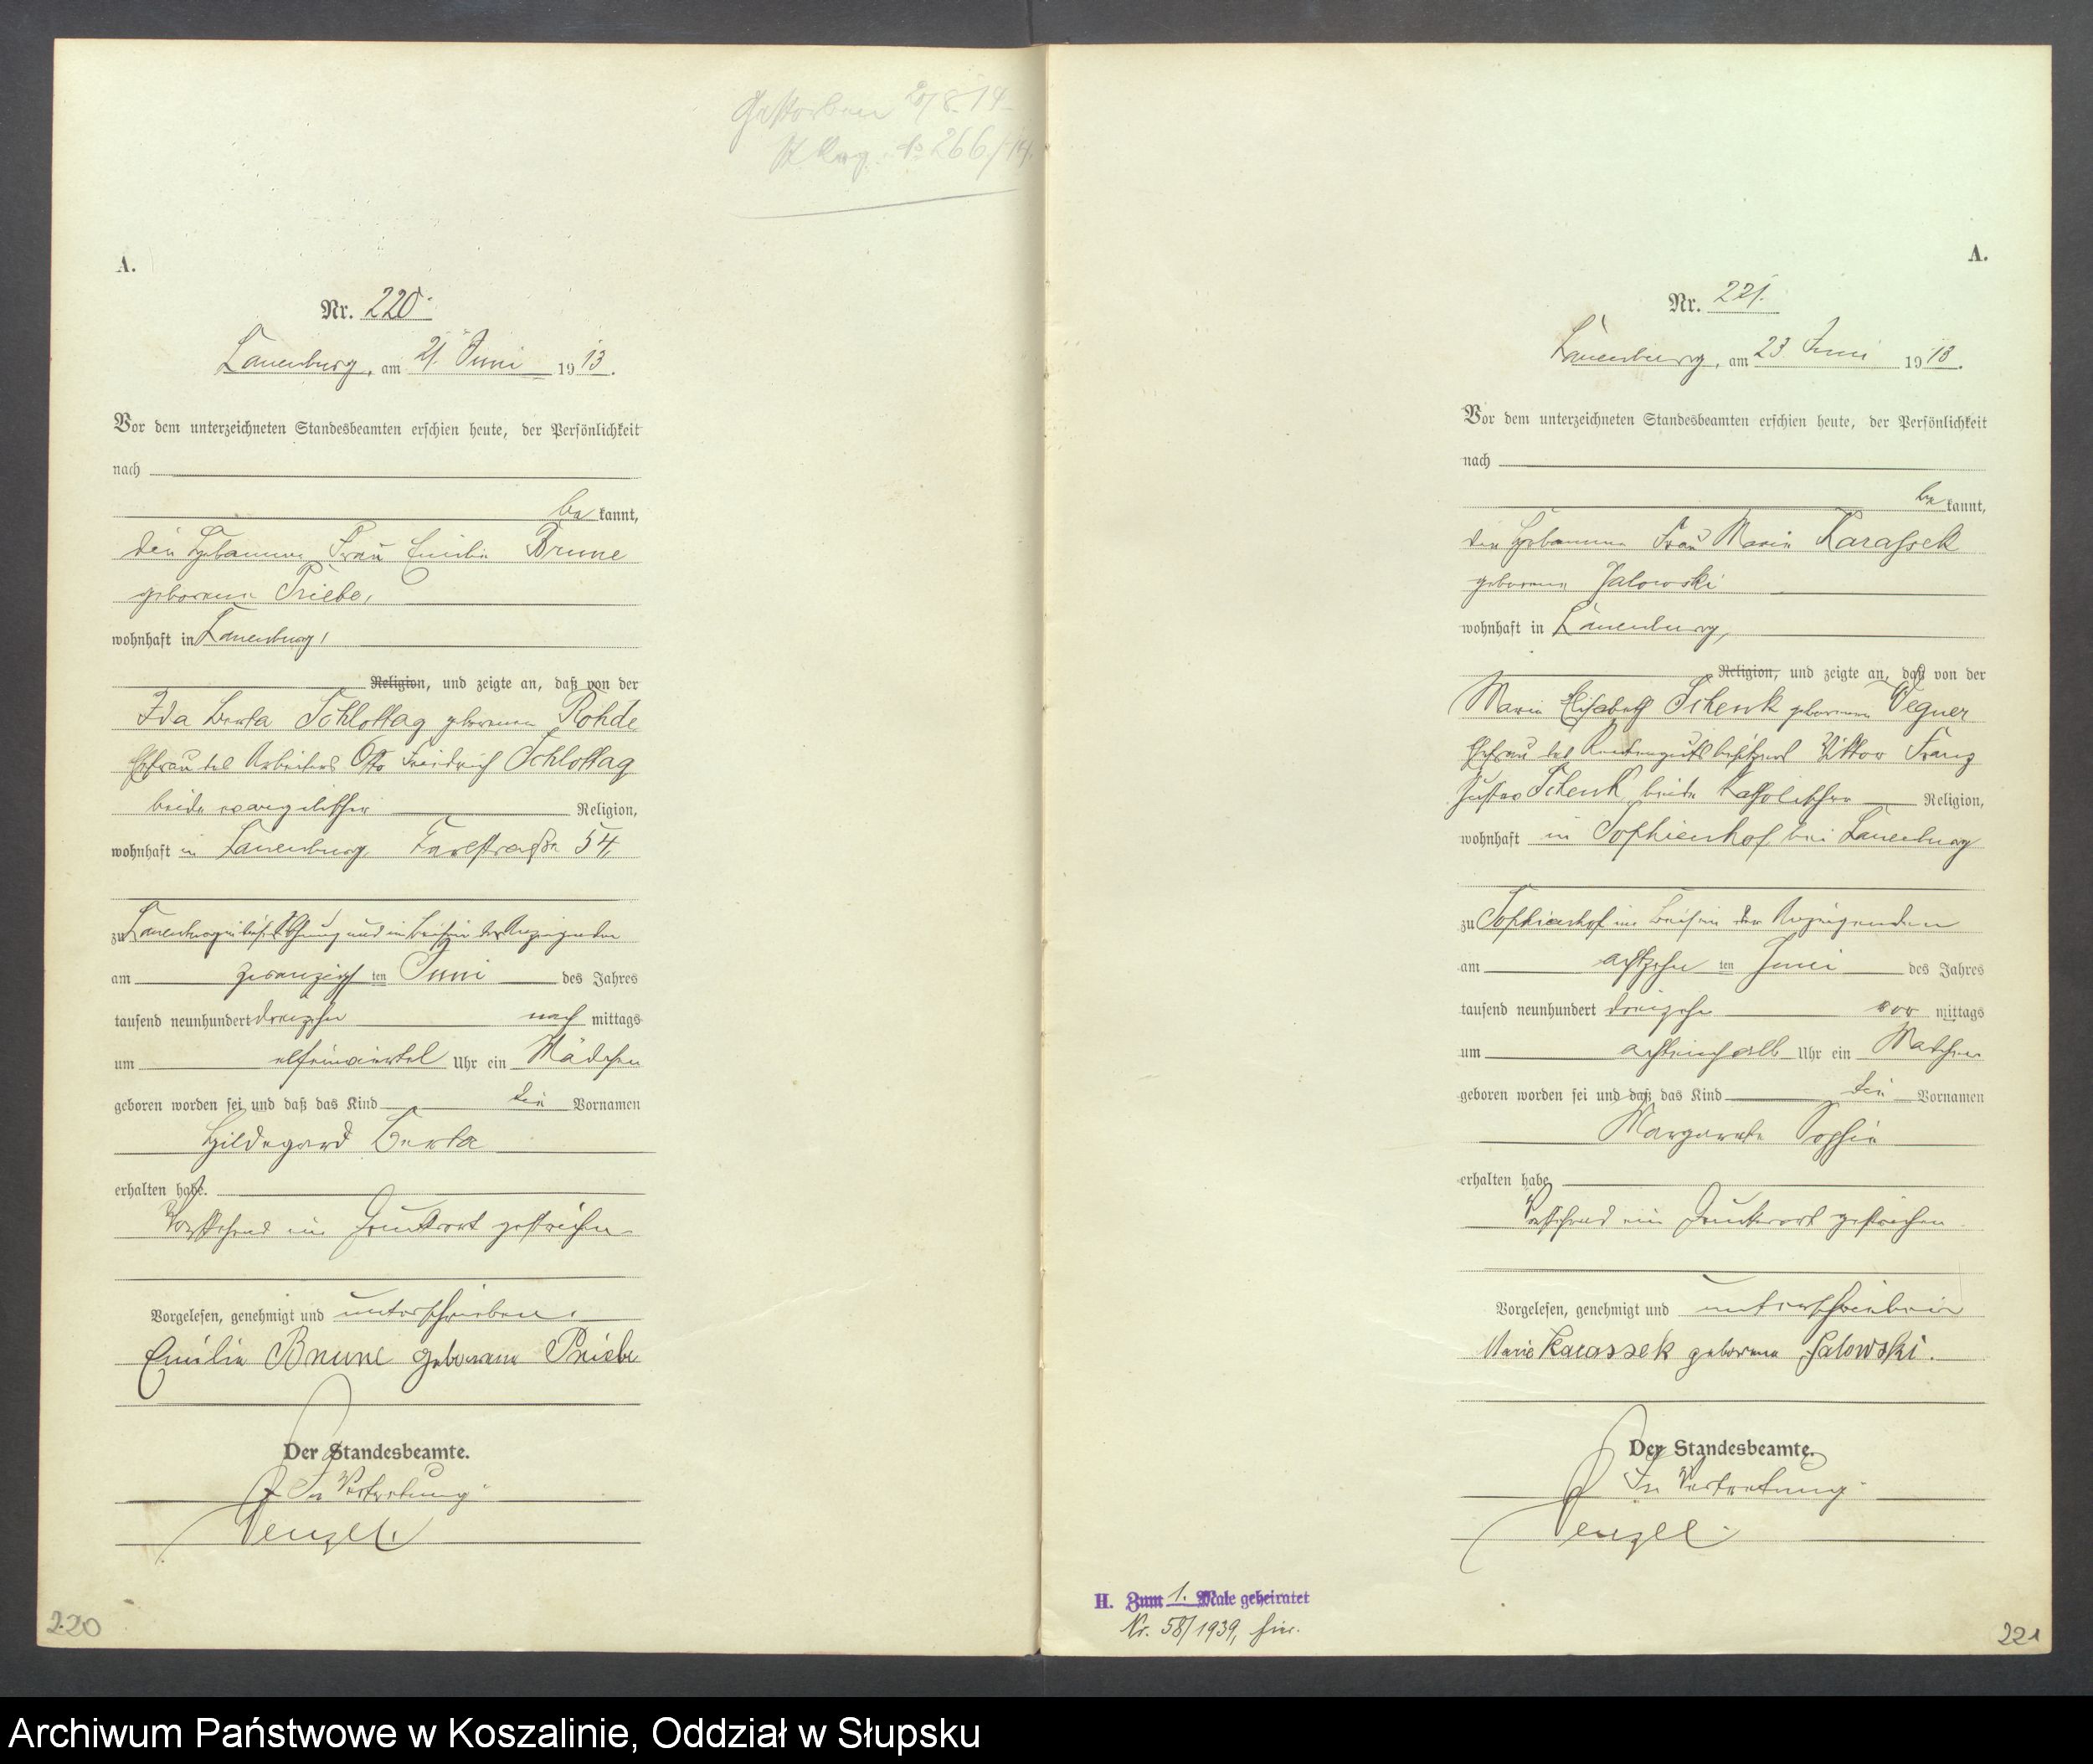 Gestorben 20/8. 14.
St. Reg. No 266./14.
A.
Nr. 220.
Lauenburg, am 21. Juni 1913.
Vor dem unterzeichneten Standesbeamten erschien heute, der Persönlichkeit
nach
be kannt,
die Hebamme Frau Emilie Brune
geborene Priebe,
wohnhaft in Lauenburg,
Religion, und zeigte an, daß von der
Ida Berta Schlottag geborenen Rohde
Ehefrau des Arbeiters Otto Friedrich Schlottag
beide evangelischer Religion,
wohnhaft in Lauenburg, 54,
zu Lauenburg in dieser Wohnung und im Beisein der Anzeigenden
am zwanzigsten Juni des Jahres
tausend neunhundert dreizehn nach mittags
um elfeinviertel Uhr ein Mädchen
geboren worden sei und daß das Kind die Vornamen
Hildegard Berta
erhalten habe.
Vorstehend ein Druckwort gestrichen.
Vorgelesen, genehmigt und unterschrieben.
Emilie Brune geborene Priebe
Der Standesbeamte.
In Vertretung.
Wenzel.
220
A.
Nr. 221.
Lauenburg, am 23. Juni 1913.
Vor dem unterzeichneten Standesbeamten erschien heute, der Persönlichkeit
nach
be kannt,
die Hebamme Frau Marie Karassek
geborene Jalowski
wohnhaft in Lauenburg,
Religion, und zeigte an, daß von der
Maria Elisabeth Schenk geborenen Wegner
Ehefrau des Rentengutsbesitzers Viktor Franz
Gustav Schenk, beide katholischer Religion,
wohnhaft in Sophienhof bei Lauenburg
zu Sophienhof im Beisein der Anzeigenden
am achtzehnten Juni des Jahres
tausend neunhundert dreizehn vor mittags
um achteinhalb Uhr ein Mädchen
geboren worden sei und daß das Kind die Vornamen
Margarete Sophie
erhalten habe
Vorstehend ein Druckwort gestrichen.
Vorgelesen, genehmigt und unterschrieben
Marie Karassek geborene Jalowski.
Der Standesbeamte.
In Vertretung.
Wenzel.
H. Zum 1. Male geheiratet
Nr. 58/1939, hier.
221
Archiwum Państwowe w Koszalinie, Oddział w Słupsku